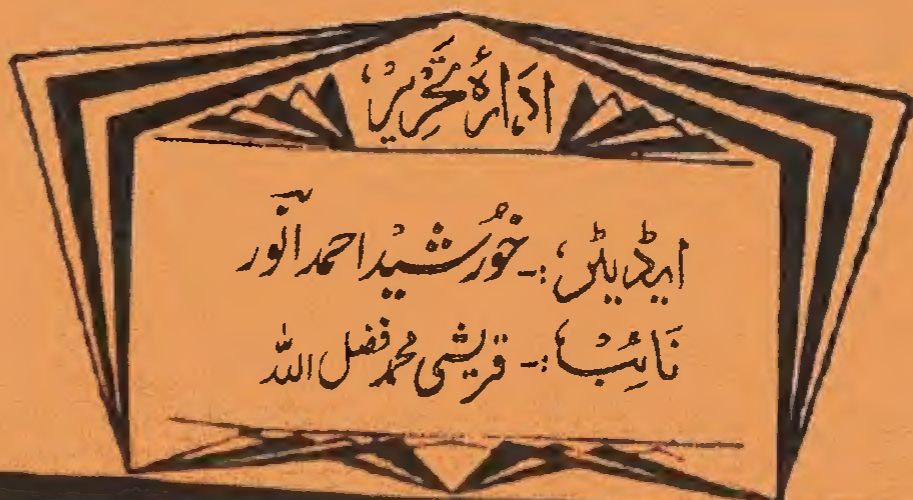 ادارۂ تحریر
ایڈیٹر :- خورشید احمد انور
نائب :- قریشی محمد فضل اللہ